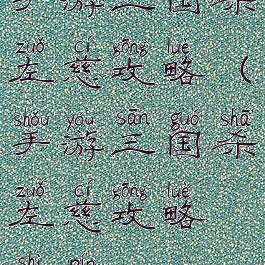 手游三国杀
zuǒ cí gōng lüè
左慈攻略(
shǒu yóu sān guó shā
手游三国杀
zuǒ cí gōng lüè
左慈攻略